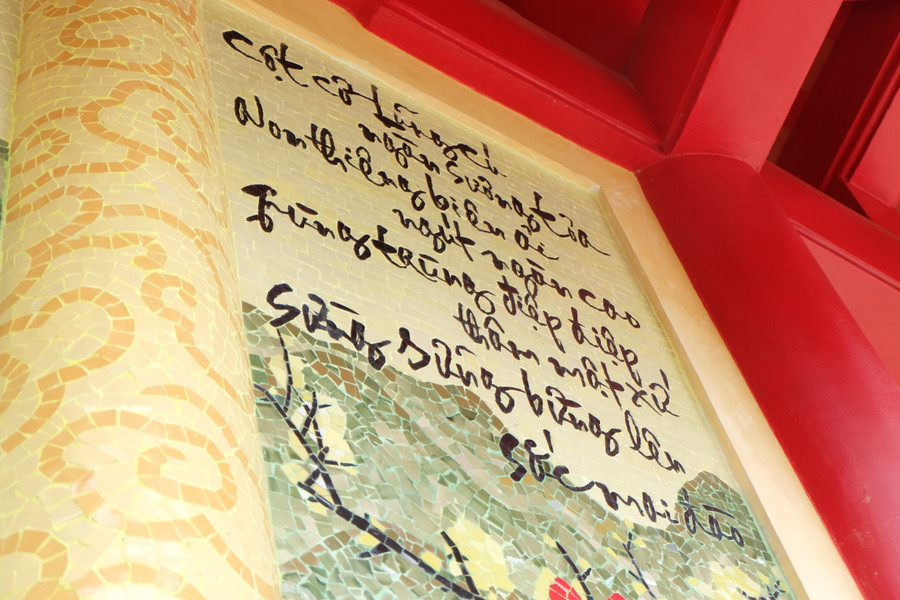 Cột cờ Lũng Cú
ngàn sương tỏa
Non thiêng biên ải
ngút ngàn cao
Trùng trùng điệp điệp
thâm mật xứ
Sừng sững bừng lên
sắc mai đào